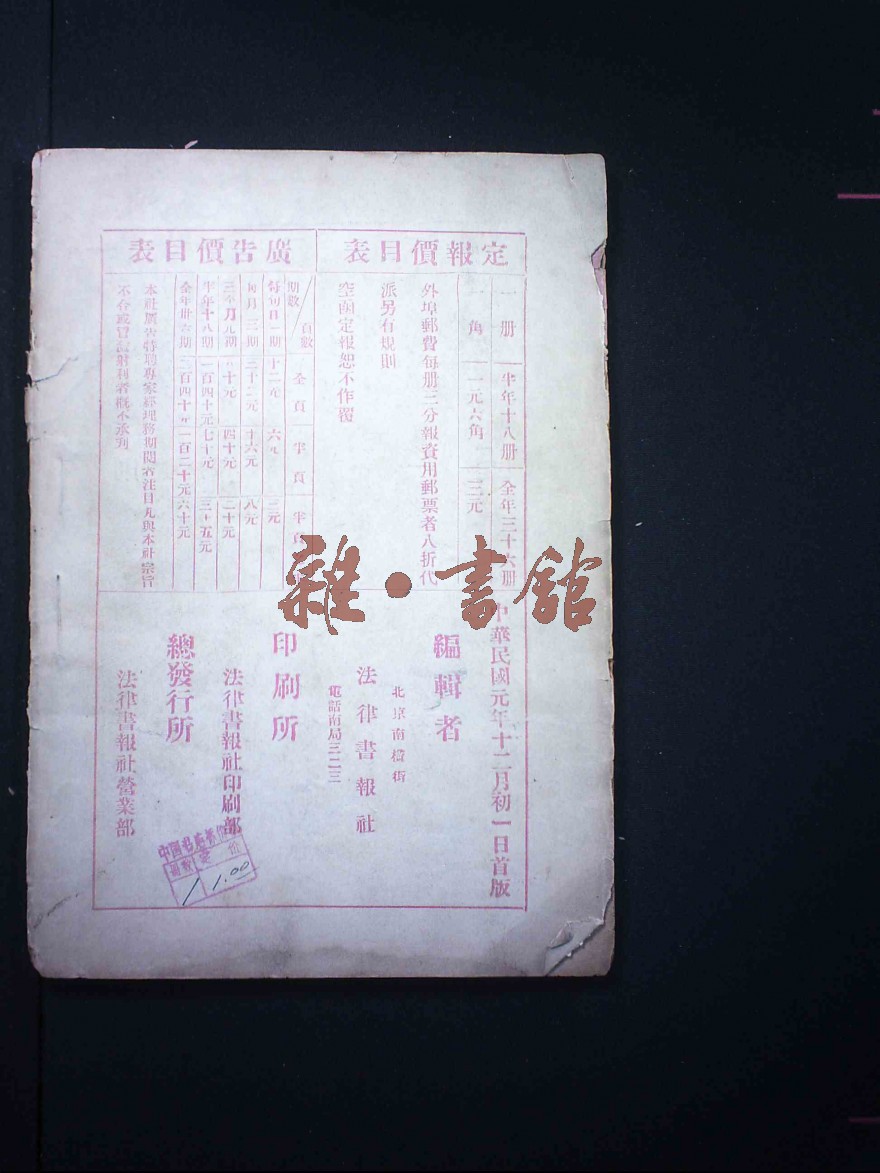 定報價目表
一冊　半年十八冊　全年三十六冊
一角　一元六角　三元
外埠郵費每册三分報資用郵票者八折代
派另有規則
空函定報恕不作覆
廣告價目表
期數／頁數　全頁　半頁　半
每旬日一期　十二元　六元　三元
每月三期　三十二元　十六元　八元
三個月九期　八十元　四十元　二十元
半年十八期　一百四十元　七十元　三十五元
全年卅六期　二百四十元　一百二十元　六十元
本社廣告特聘專家經理務期閱者注目凡與本社宗旨
不合或冒濫射利者概不承刊
中華民國元年十二月初一日首版
編輯者
北京南橫街
法律書報社
電話南局三二三
印刷所
法律書報社印刷部
總發行所
法律書報社營業部
雜·書館
中国书店
冊數　定價
1　1.00